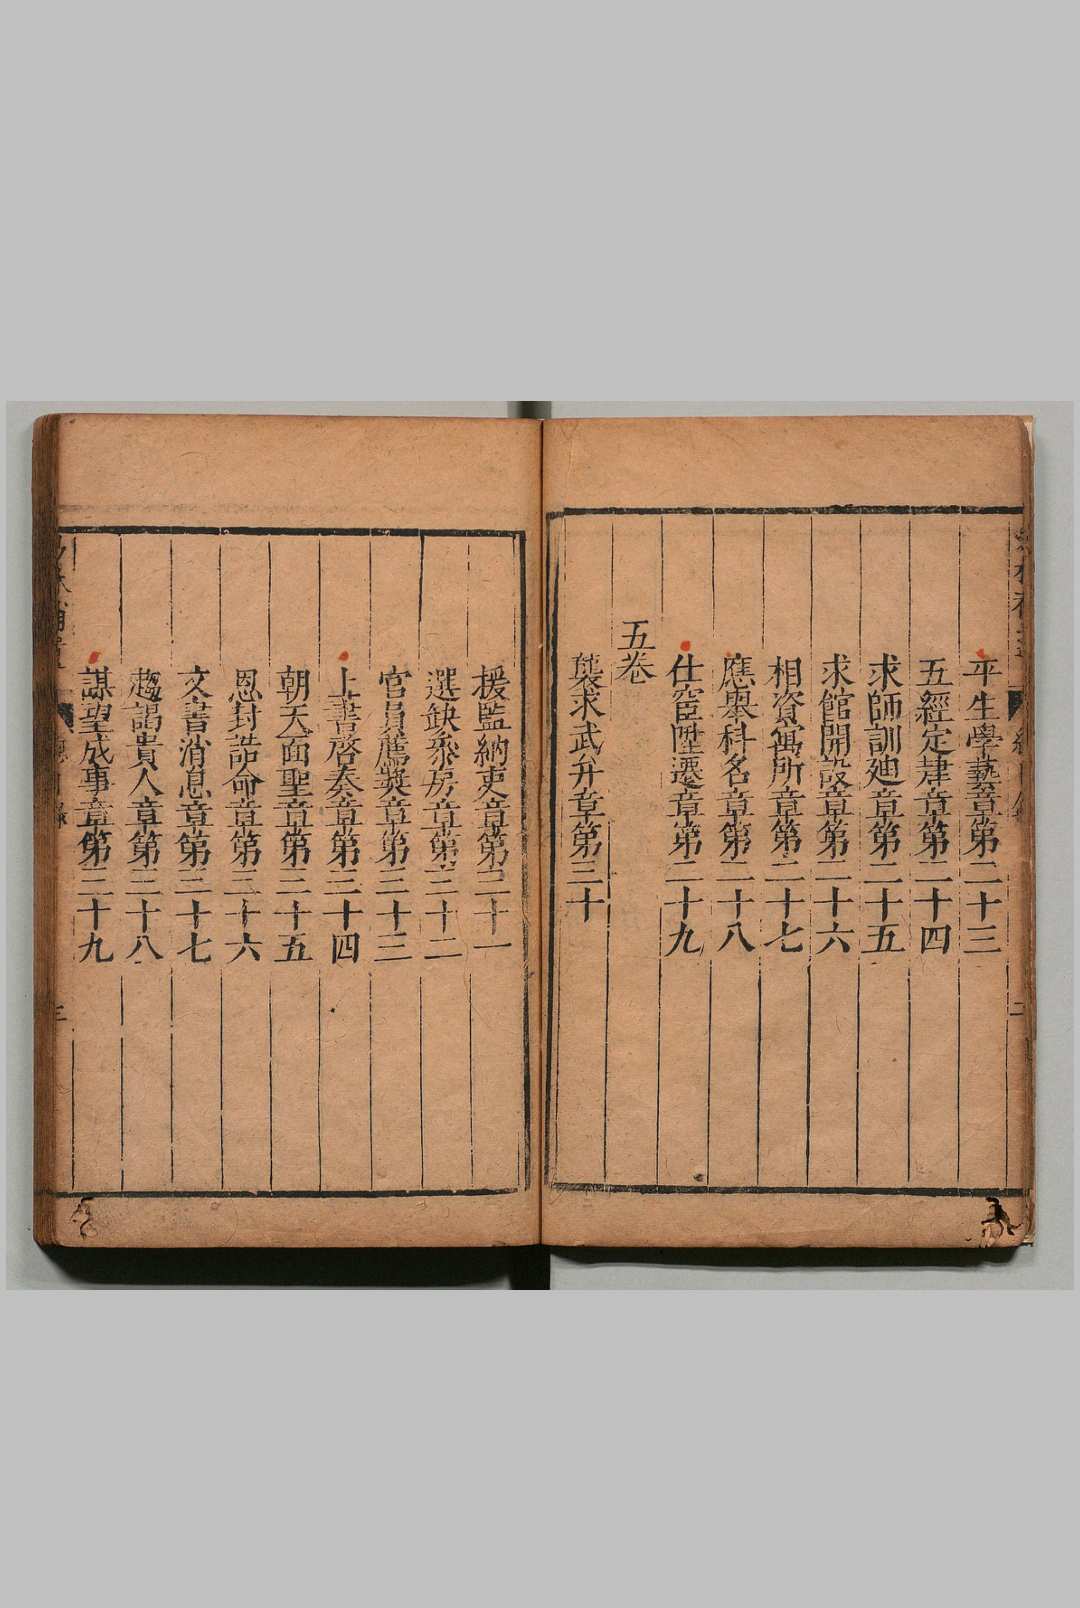 平生學藝章第二十三
五經定肄章第二十四
求師訓廸章第二十五
求館開設章第二十六
相資寓所章第二十七
應舉科名章第二十八
仕宦陞遷章第二十九
五卷
襲求武弁章第三十
援監納吏章第三十一
選缺叅房章第三十二
官員薦奬章第三十三
上書啓奏章第三十四
朝天面聖章第三十五
恩封誥命章第三十六
文書消息章第三十七
趨謁貴人章第三十八
謀望成事章第三十九
三